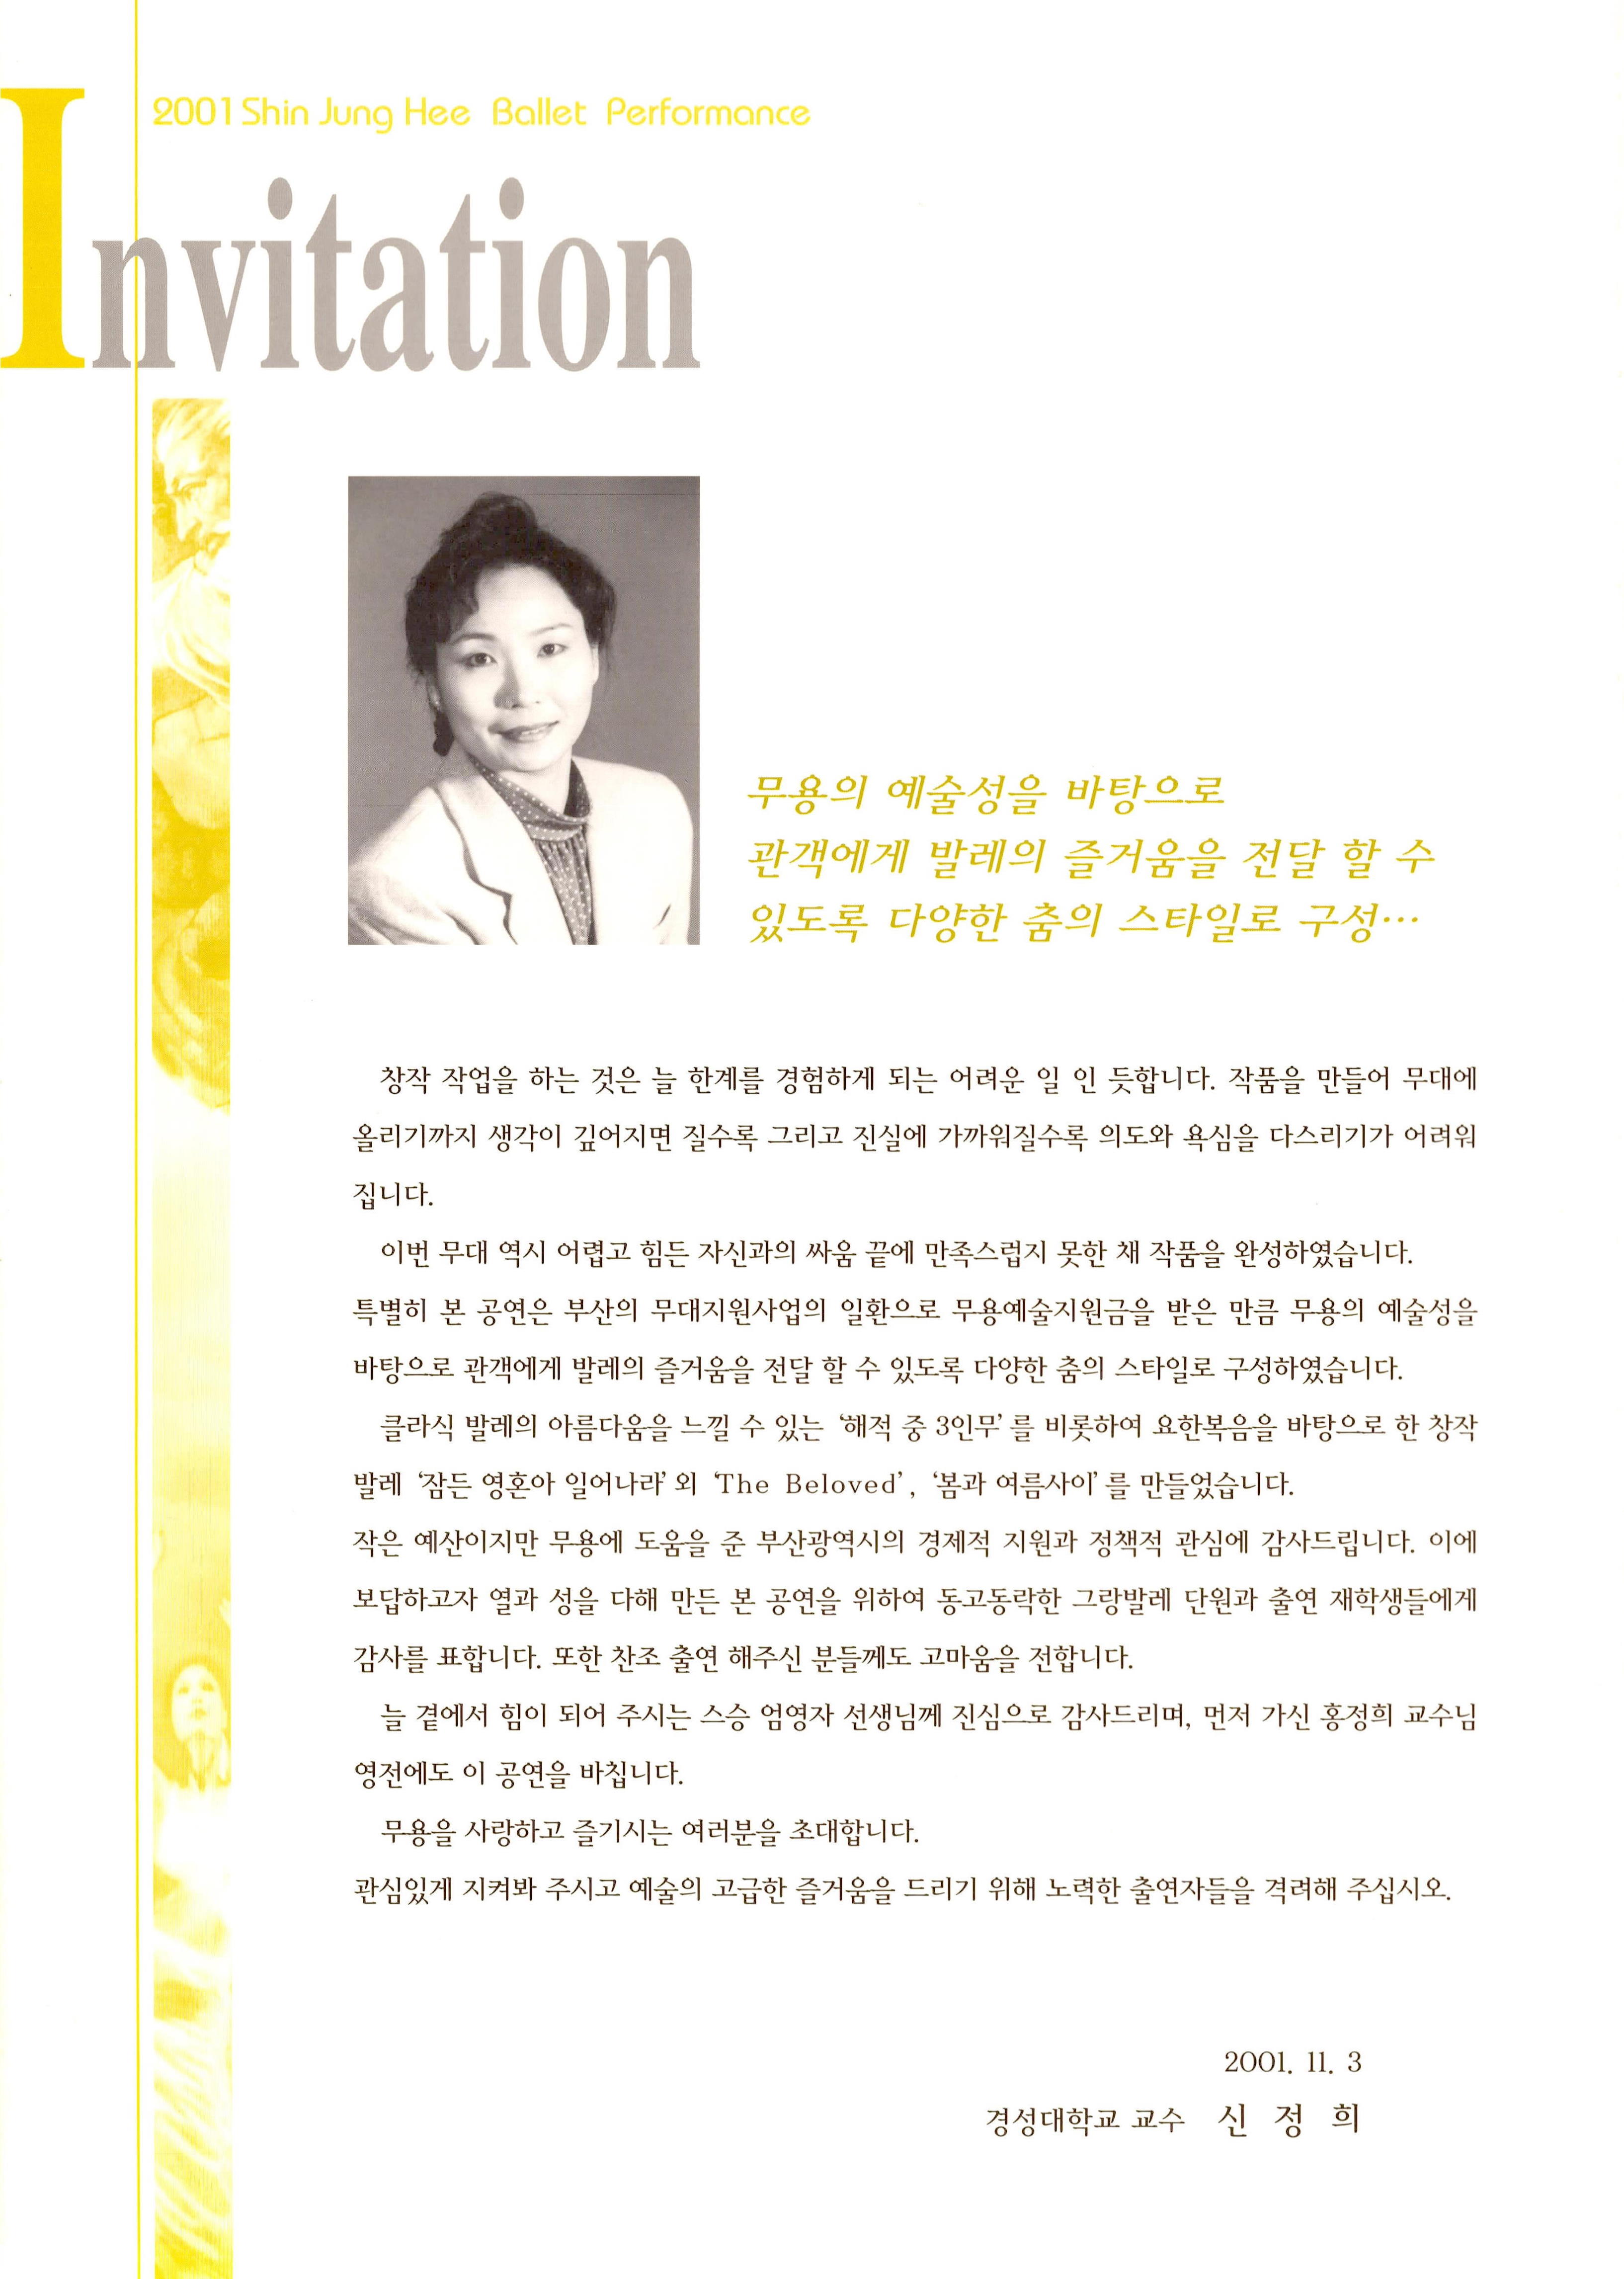 2001 Shin Jung Hee Ballet Performance
Invitation
무용의 예술성을 바탕으로
관객에게 발레의 즐거움을 전달 할 수
있도록 다양한 춤의 스타일로 구성…
창작 작업을 하는 것은 늘 한계를 경험하게 되는 어려운 일 인 듯합니다. 작품을 만들어 무대에
올리기까지 생각이 깊어지면 질수록 그리고 진실에 가까워질수록 의도와 욕심을 다스리기가 어려워
집니다.
이번 무대 역시 어렵고 힘든 자신과의 싸움 끝에 만족스럽지 못한 채 작품을 완성하였습니다.
특별히 본 공연은 부산의 무대지원사업의 일환으로 무용예술지원금을 받은 만큼 무용의 예술성을
바탕으로 관객에게 발레의 즐거움을 전달 할 수 있도록 다양한 춤의 스타일로 구성하였습니다.
클라식 발레의 아름다움을 느낄 수 있는 ‘해적 중 3인무’를 비롯하여 요한복음을 바탕으로 한 창작
발레 ‘잠든 영혼아 일어나라’외 ‘The Beloved’, ‘봄과 여름사이’를 만들었습니다.
작은 예산이지만 무용에 도움을 준 부산광역시의 경제적 지원과 정책적 관심에 감사드립니다. 이에
보답하고자 열과 성을 다해 만든 본 공연을 위하여 동고동락한 그랑발레 단원과 출연 재학생들에게
감사를 표합니다. 또한 찬조 출연 해주신 분들께도 고마움을 전합니다.
늘 곁에서 힘이 되어 주시는 스승 엄영자 선생님께 진심으로 감사드리며, 먼저 가신 홍정희 교수님
영전에도 이 공연을 바칩니다.
무용을 사랑하고 즐기시는 여러분을 초대합니다.
관심있게 지켜봐 주시고 예술의 고급한 즐거움을 드리기 위해 노력한 출연자들을 격려해 주십시오.
2001. 11. 3
경성대학교 교수 신 정 희